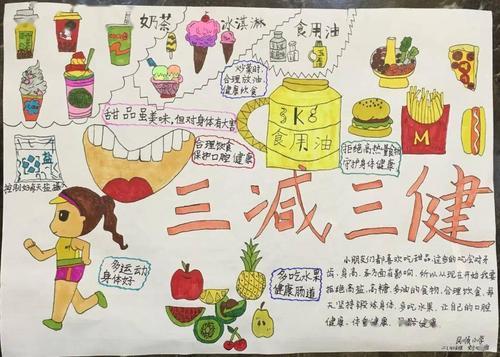 奶茶
冰淇淋
食用油
炒菜时,
合理放油,
健康饮食
甜品虽美味,但对身体有大害
5KG
食用油
合理饮食
保护口腔健康
拒绝高热量食物
守护身体健康
M
盐
控制好每天盐摄
三减三健
多运动
身体好
多吃水果
健康肠道
小朋友们都喜欢吃甜品,这多的吃会对牙
齿、身高、多方面有影响,所以从现在开始我要
拒绝高盐、高糖、多油的食物,合理饮食,每
天坚持锻炼身体,多吃水果,让自己的口腔
健康、体重健康、
健康。
小学